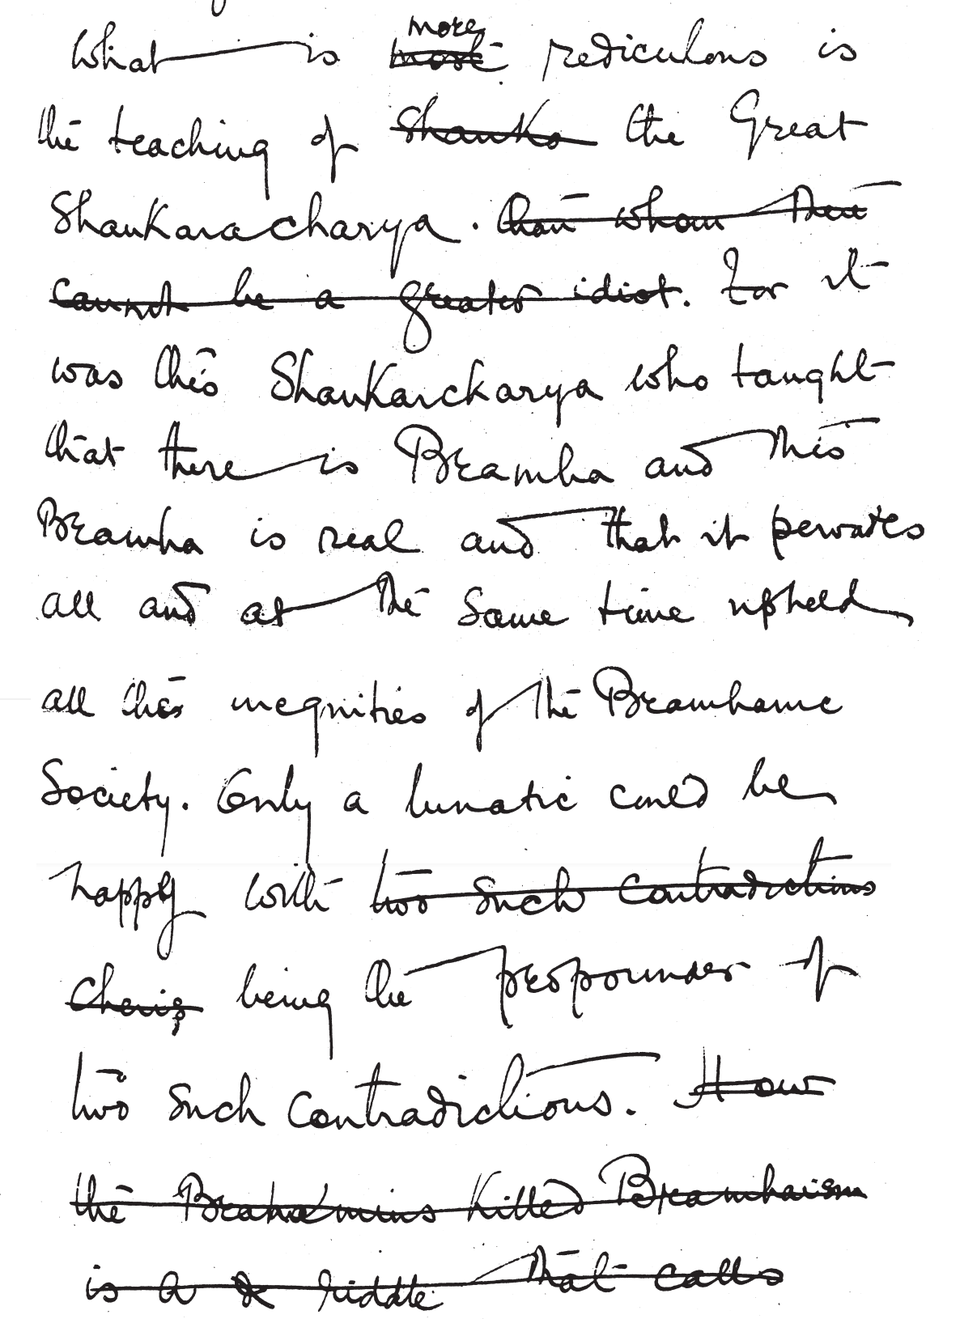 more
What is most rediculous is
the teaching of Shanka the Great
Shankaracharya. than whom there
cannot be a greater idiot. For it
was this Shankarcharya who taught
that there is Bramha and this
Bramha is real and that it pervades
all and at the same time upheld
all the inequities of the Bramhanic
Society. Only a lunatic could be
happy with two such contradictions
being the propounder of
two such contradictions. How
the Brahamins killed Bramhaism
is a riddle that calls